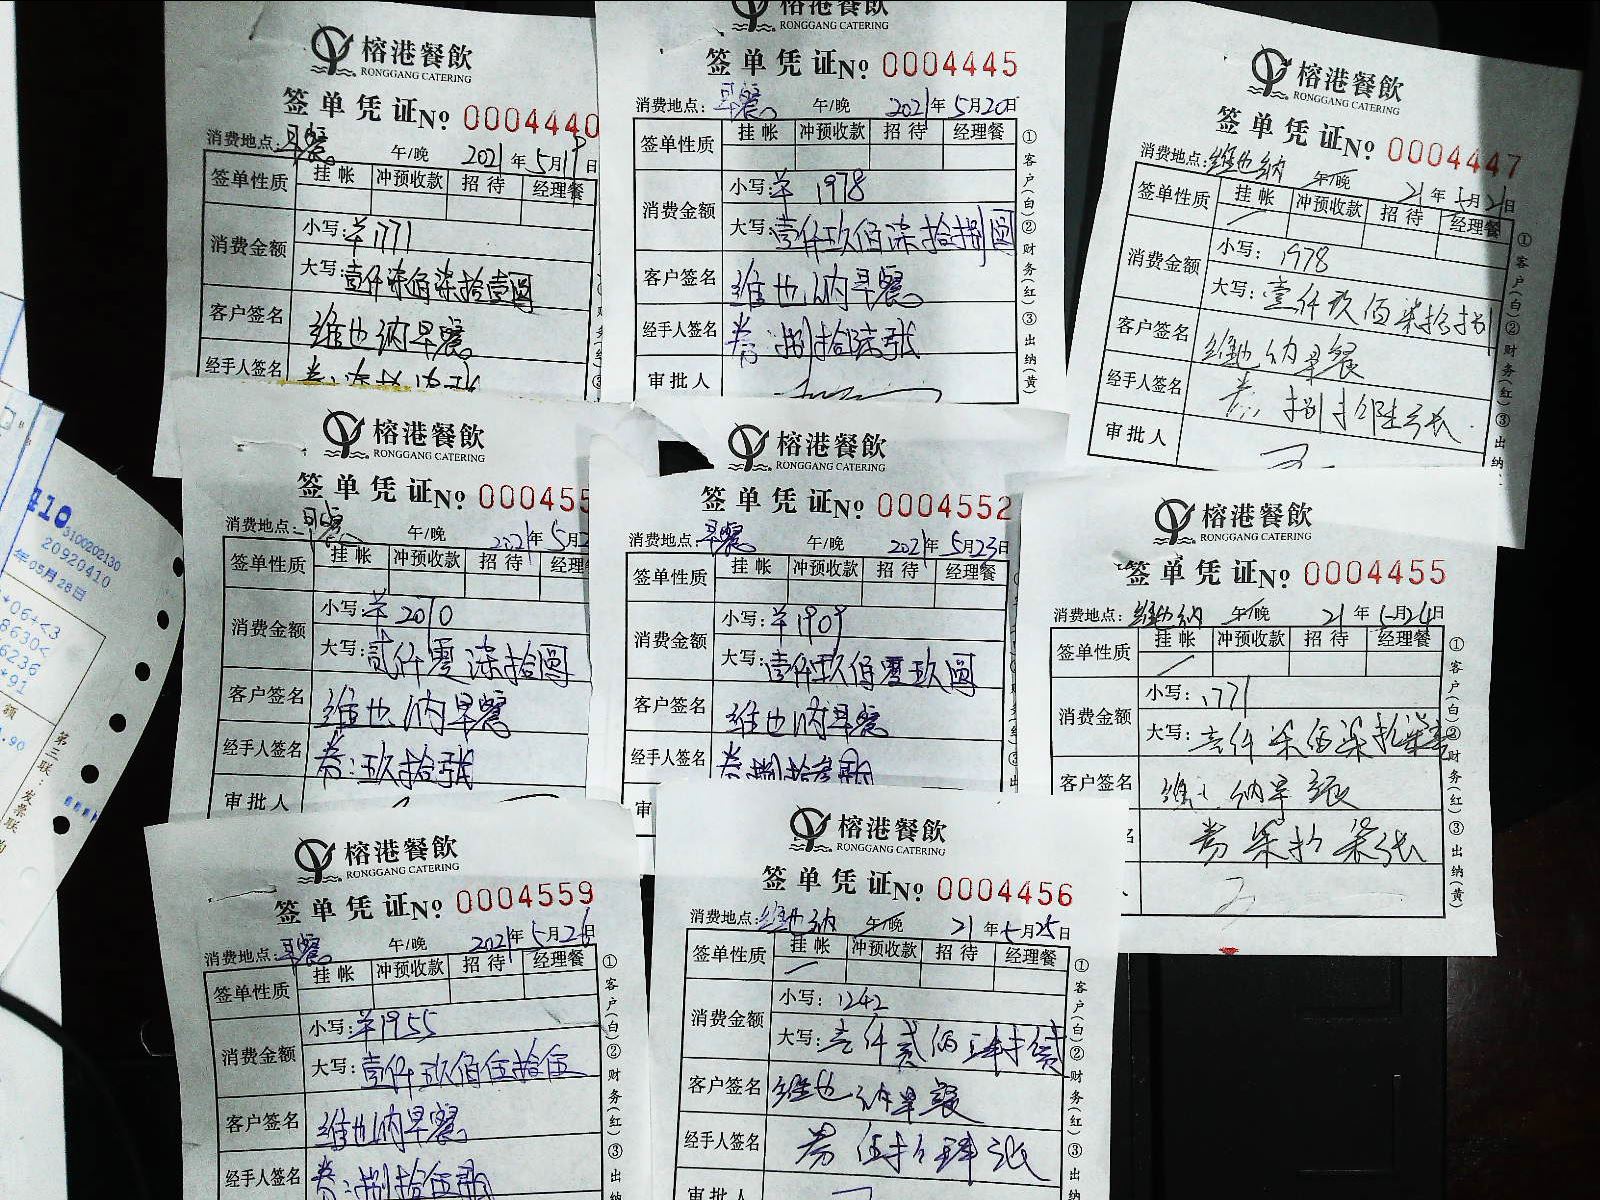 榕港餐飲
RONGGANG CATERING
签单凭证№ 0004440
消费地点:早餐 午/晚 2021年5月19日
签单性质 挂帐 冲预收款 招待 经理餐
消费金额
小写:羊1771
大写:壹仟柒佰柒拾壹圆
客户签名 维也纳早餐
经手人签名
榕港餐飲
RONGGANG CATERING
签单凭证№ 0004445
消费地点:早餐 午/晚 2021年5月20日
签单性质 挂帐 冲预收款 招待 经理餐
消费金额
小写:羊 1978
大写:壹仟玖佰柒拾捌圆
客户签名 维也纳早餐
经手人签名 券:捌拾陆张
审批人
①客户(白)②财务(红)③出纳(黄)
榕港餐飲
RONGGANG CATERING
签单凭证№ 0004447
消费地点:维也纳 午/晚 21年5月21日
签单性质 挂帐 冲预收款 招待 经理餐
消费金额
小写:1978
大写:壹仟玖佰柒拾捌
客户签名 维也纳早餐
经手人签名 券:捌拾陆张
审批人
①客户(白)②财务(红)③出纳
榕港餐飲
RONGGANG CATERING
签单凭证№ 000455
消费地点:早餐 午/晚 2021年5月2
签单性质 挂帐 冲预收款 招待 经理
消费金额
小写:羊2070
大写:贰仟零柒拾圆
客户签名 维也纳早餐
经手人签名 券:玖拾张
审批人
榕港餐飲
RONGGANG CATERING
签单凭证№ 0004552
消费地点:早餐 午/晚 2021年5月23日
签单性质 挂帐 冲预收款 招待 经理餐
消费金额
小写:羊1909
大写:壹仟玖佰零玖圆
客户签名 维也纳早餐
经手人签名 券:捌拾叁张
审
榕港餐飲
RONGGANG CATERING
签单凭证№ 0004455
消费地点:维也纳 午/晚 21年5月24日
签单性质 挂帐 冲预收款 招待 经理餐
消费金额
小写:1771
大写:壹仟柒佰柒拾柒壹
客户签名 维也纳早餐
券 柒拾柒张
①客户(白)②财务(红)③出纳(黄)
榕港餐飲
RONGGANG CATERING
签单凭证№ 0004559
消费地点:早餐 午/晚 2021年5月26日
签单性质 挂帐 冲预收款 招待 经理餐
消费金额
小写:羊1955
大写:壹仟玖佰伍拾伍
客户签名 维也纳早餐
经手人签名 券:捌拾伍张
①客户(白)②财务(红)③出纳
榕港餐飲
RONGGANG CATERING
签单凭证№ 0004456
消费地点:维也纳 午/晚 21年5月25日
签单性质 挂帐 冲预收款 招待 经理餐
消费金额
小写:1242
大写:壹仟贰佰肆拾贰
客户签名 维也纳早餐
经手人签名 券 伍拾肆张
审批人
①客户(白)②财务(红)③出纳
410
5100202130
20920410
年05月28日
*06+<3
8630<
6236
*91
额
.90
第三联:发票联